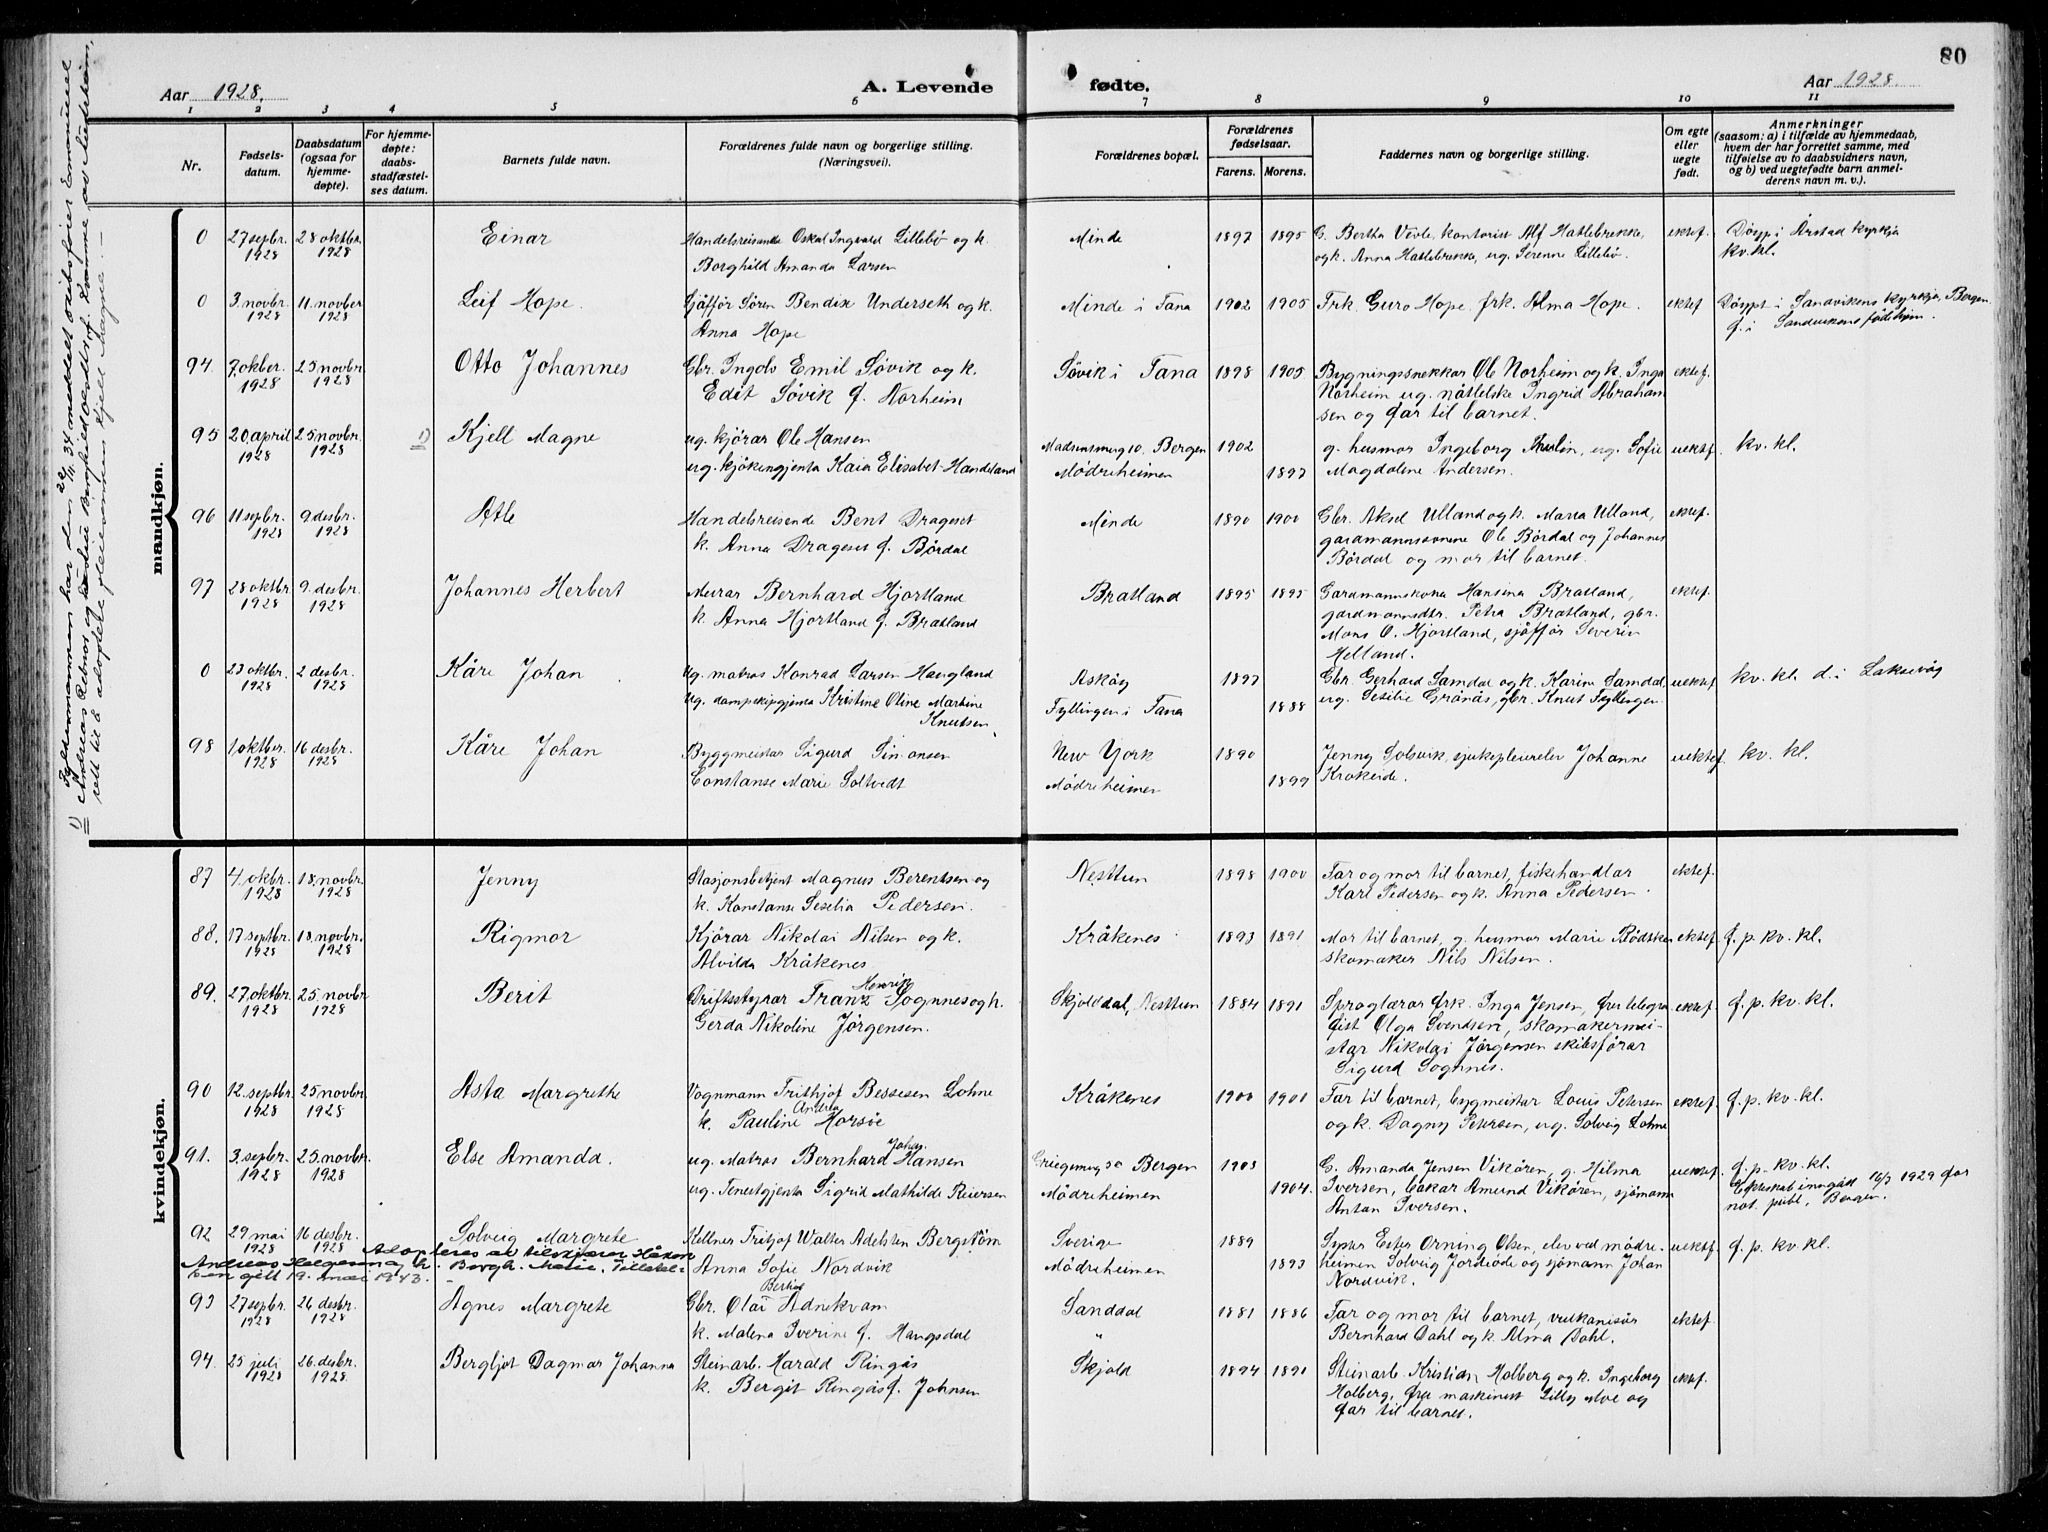 80
Aar 1928.
A. Levende
fødte.
Aar 1928.
1 2 3 4 5 6 7 8 9 10 11
Nr.
Fødsels-
datum.
Daabsdatum
(ogsaa for
hjemme-
døpte).
For hjemme-
døpte:
daabs-
stadfæstel-
ses datum.
Barnets fulde navn.
Forældrenes fulde navn og borgerlige stilling.
(Næringsvei).
Forældrenes bopæl.
Forældrenes
fødselsaar.
Farens. Morens.
Faddernes navn og borgerlige stilling.
Om egte
eller
uegte
født.
Anmerkninger
(saasom: a) i tilfælde av hjemmedaab,
hvem der har forrettet samme, med
tilføielse av to daabsvidners navn,
og b) ved uegtefødte barn anmel-
derens navn m. v.).
mandkjøn.
0 27 septbr. 1928 28 oktbr. 1928 Einar
Handelsreisende Oskal Ingvald Lillebø og k.
Borghild Amanda Larsen
Minde 1897 1895
G. Bertha Vevle, kontorist Alf Hatlebrekke,
og k. Anna Hatlebrekke, ug. Serenne Lillebø.
ektef.
Døypt i Årstad kyrkja
kv. kl.
0 3. novbr. 1928 11. novber 1928 Leif Hope.
Sjåffør Søren Bendix Underseth og k.
Anna Hope
Minde i Fana 1902 1905
Frk. Guro Hope, frk. Alma Hope.
ektef
Døypt i Sandvikens kyrkja, Bergen
f. i Sandvikens fødehjem.
94. 7. okber. 1928 25 novbr. 1928 Otto Johannes
Gbr. Ingolv Emil Søvik og k.
Edit Søvik f. Norheim
Søvik i Fana 1898 1905
Bygningssnekkar Ole Norheim og k. Inga
Norheim ug. Ingrid Abraham
sen og far til barnet.
ektef.
95 20. april 1928 25 novbr. 1928 1) Kjell Magne
ug. kjørar Ole Hansen
ug. kjøkengjenta Kaia Elisabet Handeland
10. Bergen 1902
Mødreheimen 1897
g. husmor Ingeborg ug. Sofie
Magdaline Andersen.
uektef.
kv. kl.
96 11 sepbr. 1928 9. desbr. 1928 Atle
Handelsreisende Bent Drageset
k. Anna Drageset f. Børdal
Minde 1890 1900
Gbr. Aksel Ulland og k. Maria Ulland,
gardmannssønene Ole Børdal og Johannes
Børdal og mor til barnet.
ektef.
97 28 oktbr. 1928 9. desbr. 1928 Johannes Herbert
Murar Bernhard Hjortland
k. Anna Hjortland f. Bratland
Bratland 1895 1895
Gardmannskona Hansina Bratland,
gardmannsdtr. Petra Bratland, gbr.
Mons O. Hjortland, sjåffør Severin
Helland.
ektef.
0 23 oktbr. 1928 2 desbr. 1928 Kåre Johan
ug. matros Konrad Larsen Haugland
ug. dampskipgjenta Kristine Oline Martine
Knutsen.
Askøy 1897
Fyllingen i Fana 1888
Gbr. Gerhard Samdal og k. Karine Samdal
ug. Sesilie Grånås, gbr. Knut Fyllingen.
uektef.
kv. kl. d. i Laksevåg
98 1. oktber. 1928 16 desbr. 1928 Kåre Johan
Byggmeistar Sigurd Simonsen
Constanse Marie Soltvedt
New York 1890
Mødreheimen 1899
Jenny Solsvik, sjukepleierelev Johanne
Krokeide.
uektef.
kv. kl.
kvindekjøn.
87 4. okbr. 1928 18. novbr. 1928 Jenny
Stasjonsbetjent Magnus Berentsen og
k. Konstanse Seselia Pedersen.
Nesttun 1898 1900
Far og mor til barnet, fiskehandlar
Karl Pedersen og k. Anna Pedersen
ektef.
88. 17 septbr. 1928 18. novbr. 1928 Rigmor
Kjørar Nikolai Nilsen og k.
Alvilda Kråkenes
Kråkenes 1893 1891
Mor til barnet, g. husmor Marie Bødtker
skomaker Nils Nilsen.
ektef.
f. p. kv. kl.
89. 27. oktbr. 1928 25. novbr 1928 Berit
Driftsstyrar Franz Henrik Sognnes og k.
Gerda Nikoline Jørgensen.
Skjolddal, Nesttun 1884 1891
Språglærar frk. Inga Jensen, frk telegra
fist Olga Svendsen, skomakermei-
star Nikolai Jørgensen skibsførar
Sigurd Sognnes.
ektef.
f. p. kv. kl.
90 12. septbr. 1928 25 novbr. 1928 Asta Margrethe
Vognmann Frithjof Bessesen Lohne
k. Pauline Andrea Horsøe
Kråkenes 1900 1901
Far til barnet, bygmeistar Louis Petersen
og k. Dagny Petersen, ug. Solveig Lohne
ektef.
f. p. kv. kl.
91. 3. sepbr. 1928 25. novbr. 1928 Else Amanda.
ug. Matros Bernhard Johan Hansen
ug. Tenestgjenta Sigrid Mathilde Reiersen
Bergen 1903
Mødreheimen 1904.
G. Amanda Jensen Vikøren, g. Hilma
Iversen, bakar Amund Vikøren, sjømann
Antan Iversen.
uektef.
f. p. kv. kl.
Ekteskab inngått 16/3 1929 for
not. publ. Bergen.
92 29 mai 1928 16 desbr. 1928 Solveig Margrete
Kellner Fritjof Walter Adelsten Bergstøm
Anna Sofie Nordvik
Sverige 1889
Mødreheimen 1893
Syster Ester Orning Olsen, elev ved mødre-
heimen Solveig og sjømann Johan
Nordvik.
uektef.
f. p. kv. kl.
Adopteres av tilskjærer Håkon
Andreas Helgesen og h. Borgh. Marie,
19. mai 1943.
93 27 sepbr. 1928 26 desbr. 1928 Agnes Margrete
Gbr. Olai Bertin Adnekvam
k. Malena Iverine f. Haugsdal
Sanddal 1881 1886
"
Far og mor til barnet, vulkanisør
Bernhard Dahl og k. Alma Dahl.
ektef.
94. 25 juli 1928 26. desbr. 1928. Bergljot Dagmar Johanna
Steinarb. Harald Ringås
k. Bergit Ringås f. Johnsen
Skjold 1894 1891
Steinarb. Kristian Holberg og k. Ingeborg
Holberg, fru maskinist Lilly Moe og
far til barnet.
ektef.
1) Fylkesmannen har den 20/11 34 meddelt Emanuel
Andreas Retnor og hustru f. Kvamme, av Sudeheim,
rett til å adoptere Kjell Magne. –